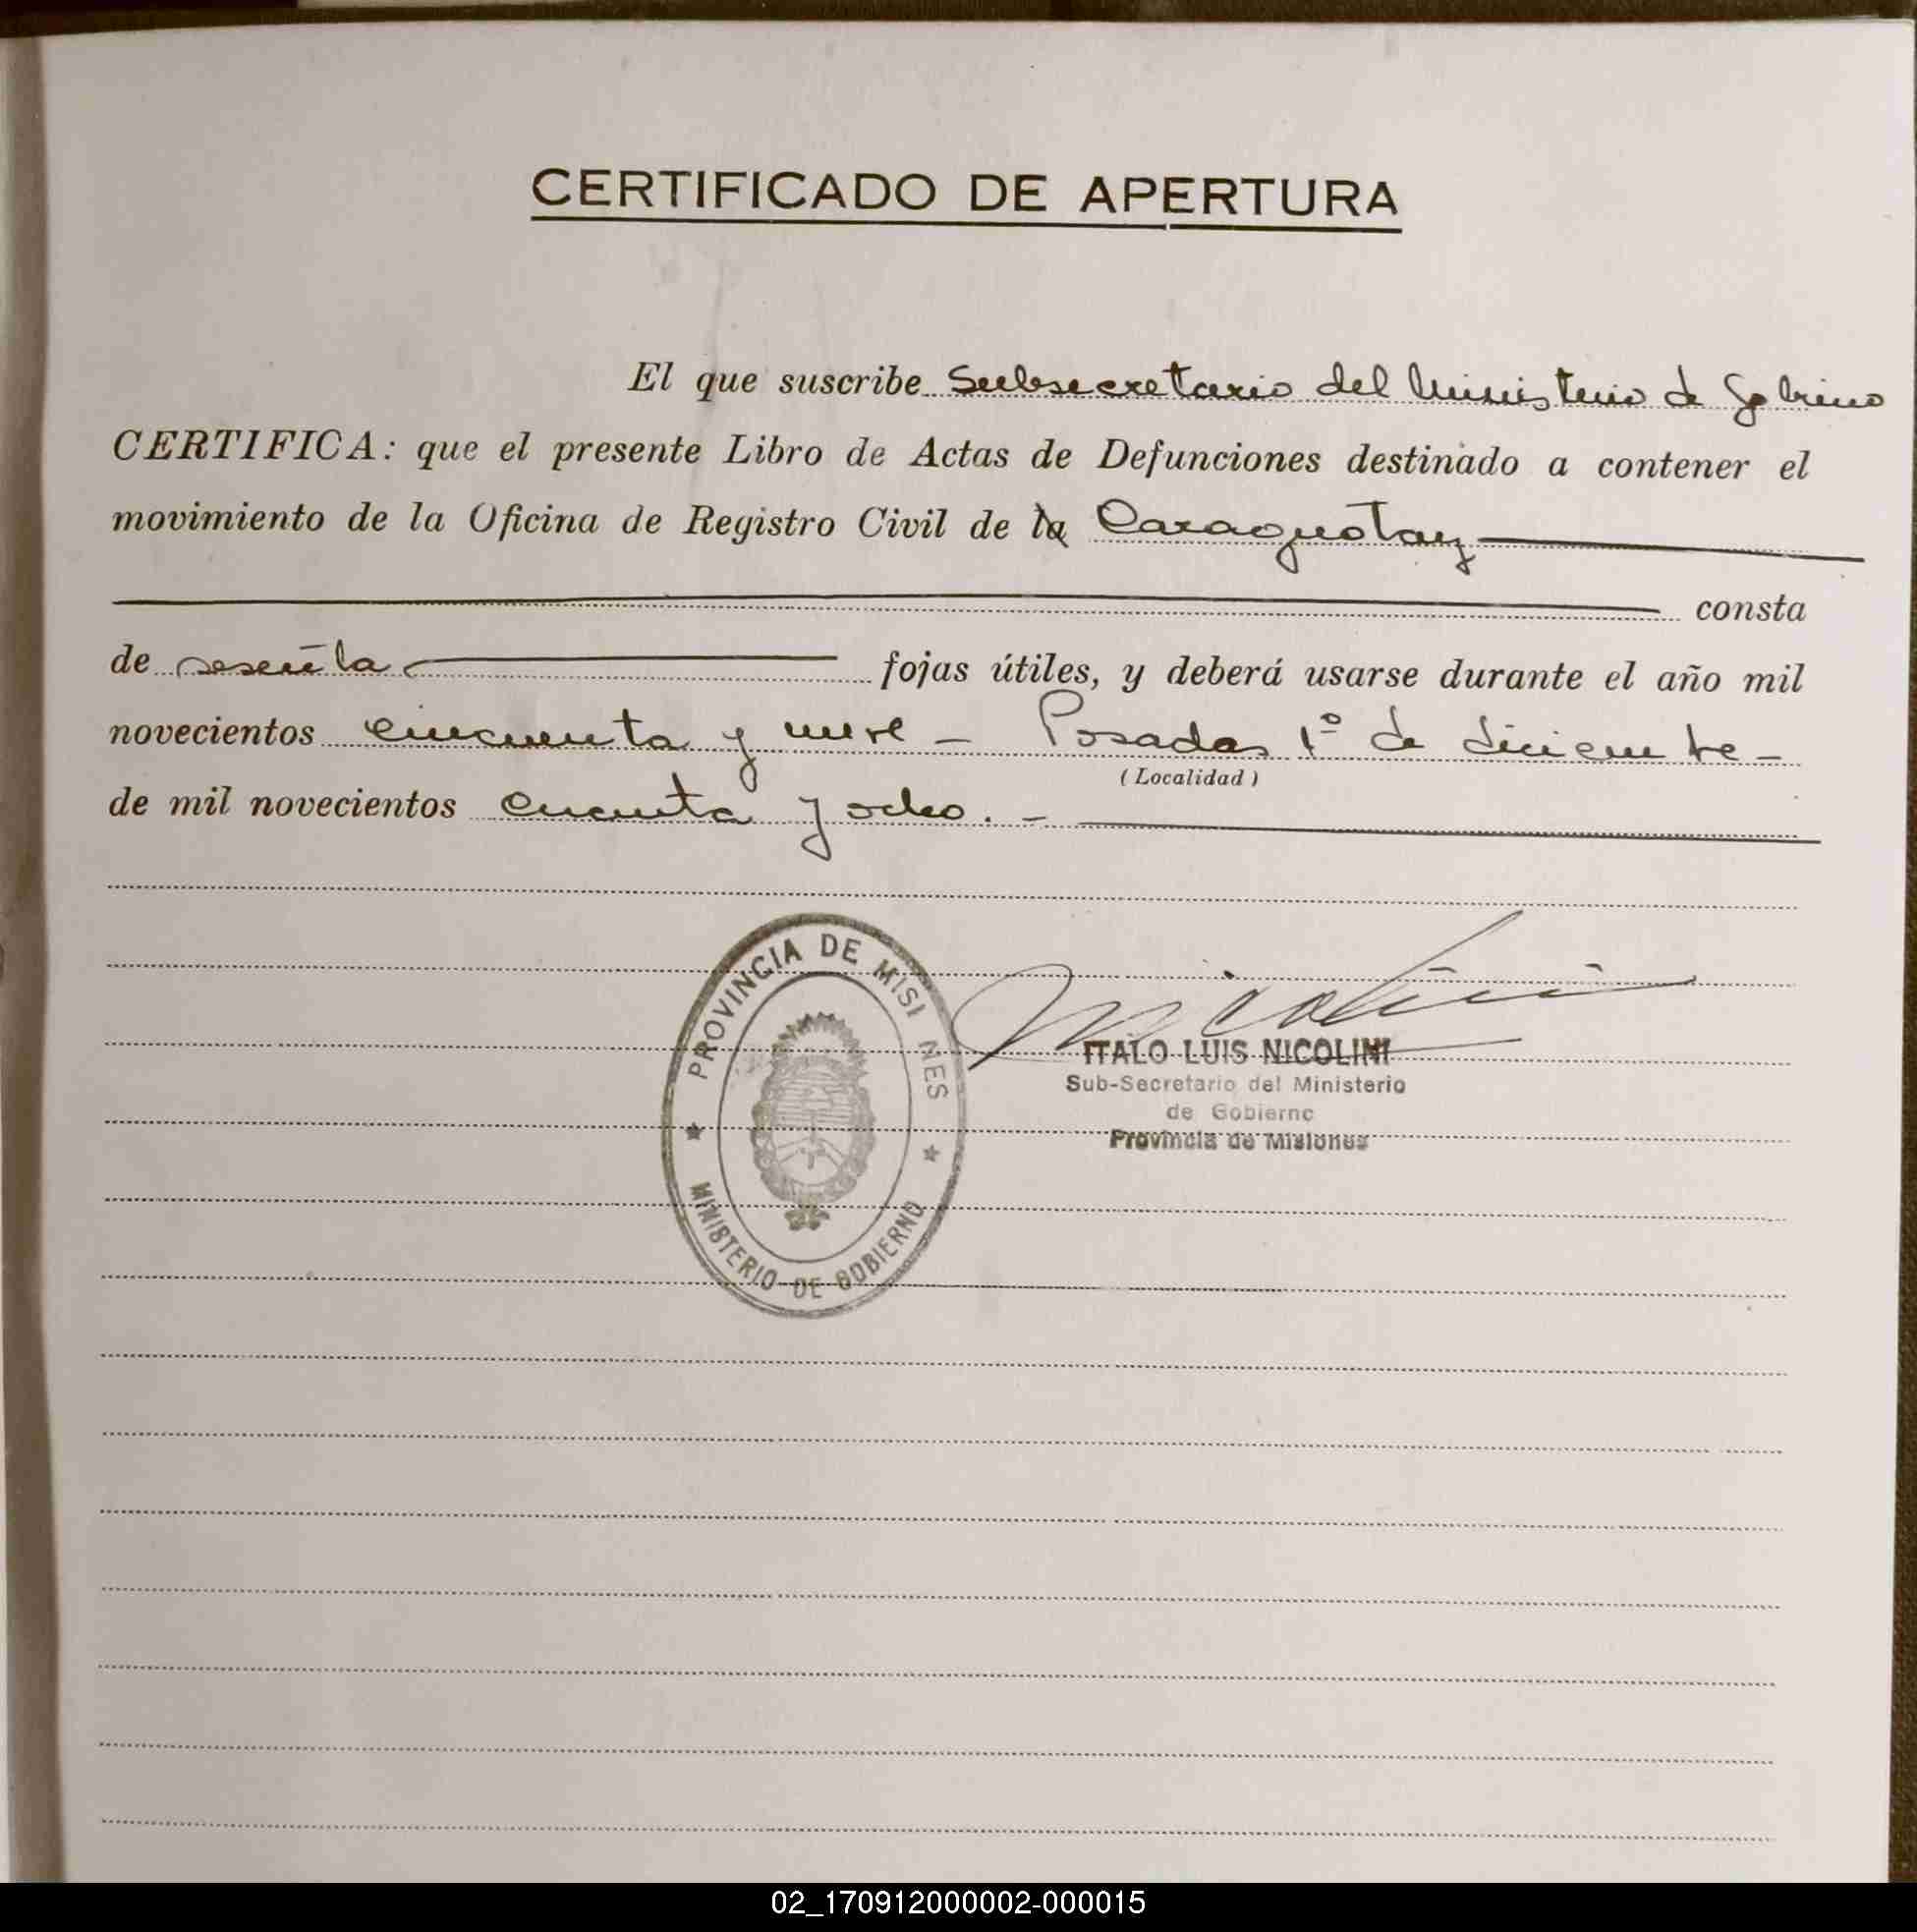 CERTIFICADO DE APERTURA
El que suscribe Subsecretario del Ministerio de Gobierno
CERTIFICA: que el presente Libro de Actas de Defunciones destinado a contener el
movimiento de la Oficina de Registro Civil de la Caraguatay
consta
de sesenta fojas útiles, y deberá usarse durante el año mil
novecientos cincuenta y nueve - Posadas 1º de diciembre -
(Localidad)
de mil novecientos cincuenta y ocho. -
PROVINCIA DE MISI NES
MINISTERIO DE GOBIERNO
Nicolini
ITALO LUIS NICOLINI
Sub-Secretario del Ministerio
de Gobierno
Provincia de Misiones
02_170912000002-000015